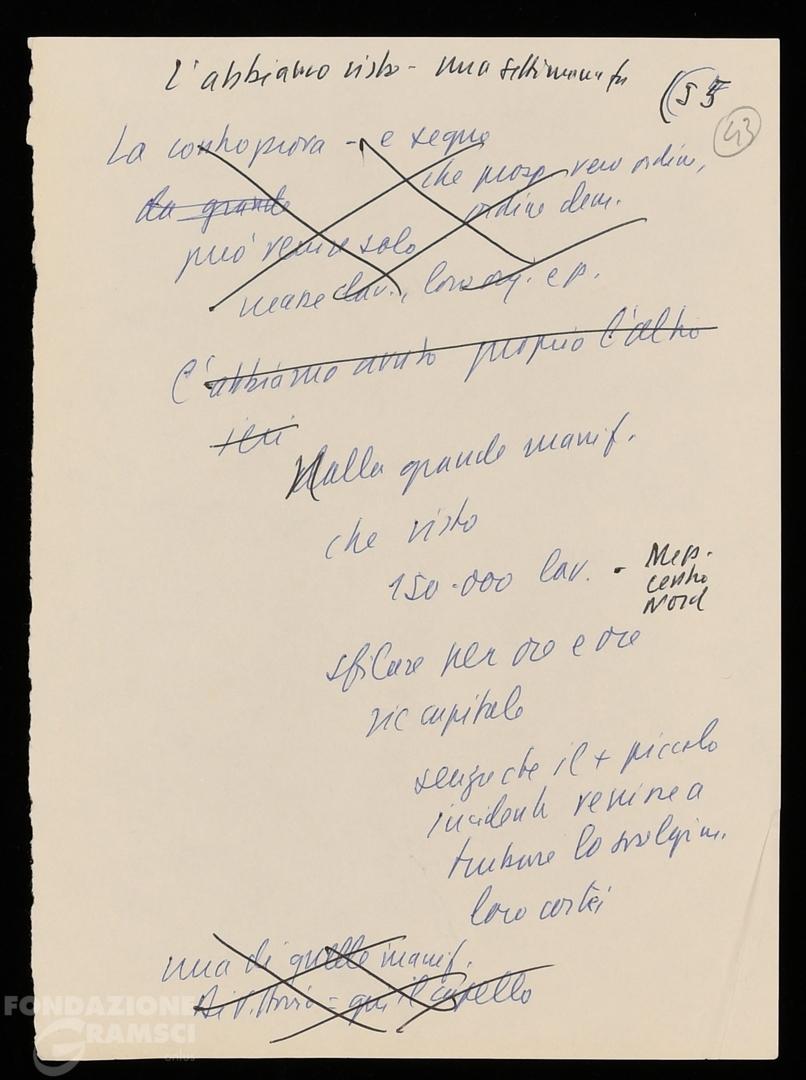 L'abbiamo visto - una settimana fa
(55
43
La controprova - e segno
che vero ordine,
da grande
ordine dem.
può venire solo
masse lav., loro org. e p.
C'abbiamo avuto proprio l'altro
ieri
Nalla grande manif.
che visto
150.000 lav. - Mep.
centro
Nord
sfilare per ore e ore
capitale
senza che il + piccolo
incidente venisse a
turbare lo svolgim.
loro cortei
una di quelle manif.
Di Vittorio - qui il cappello
FONDAZIONE
GRAMSCI
onlus